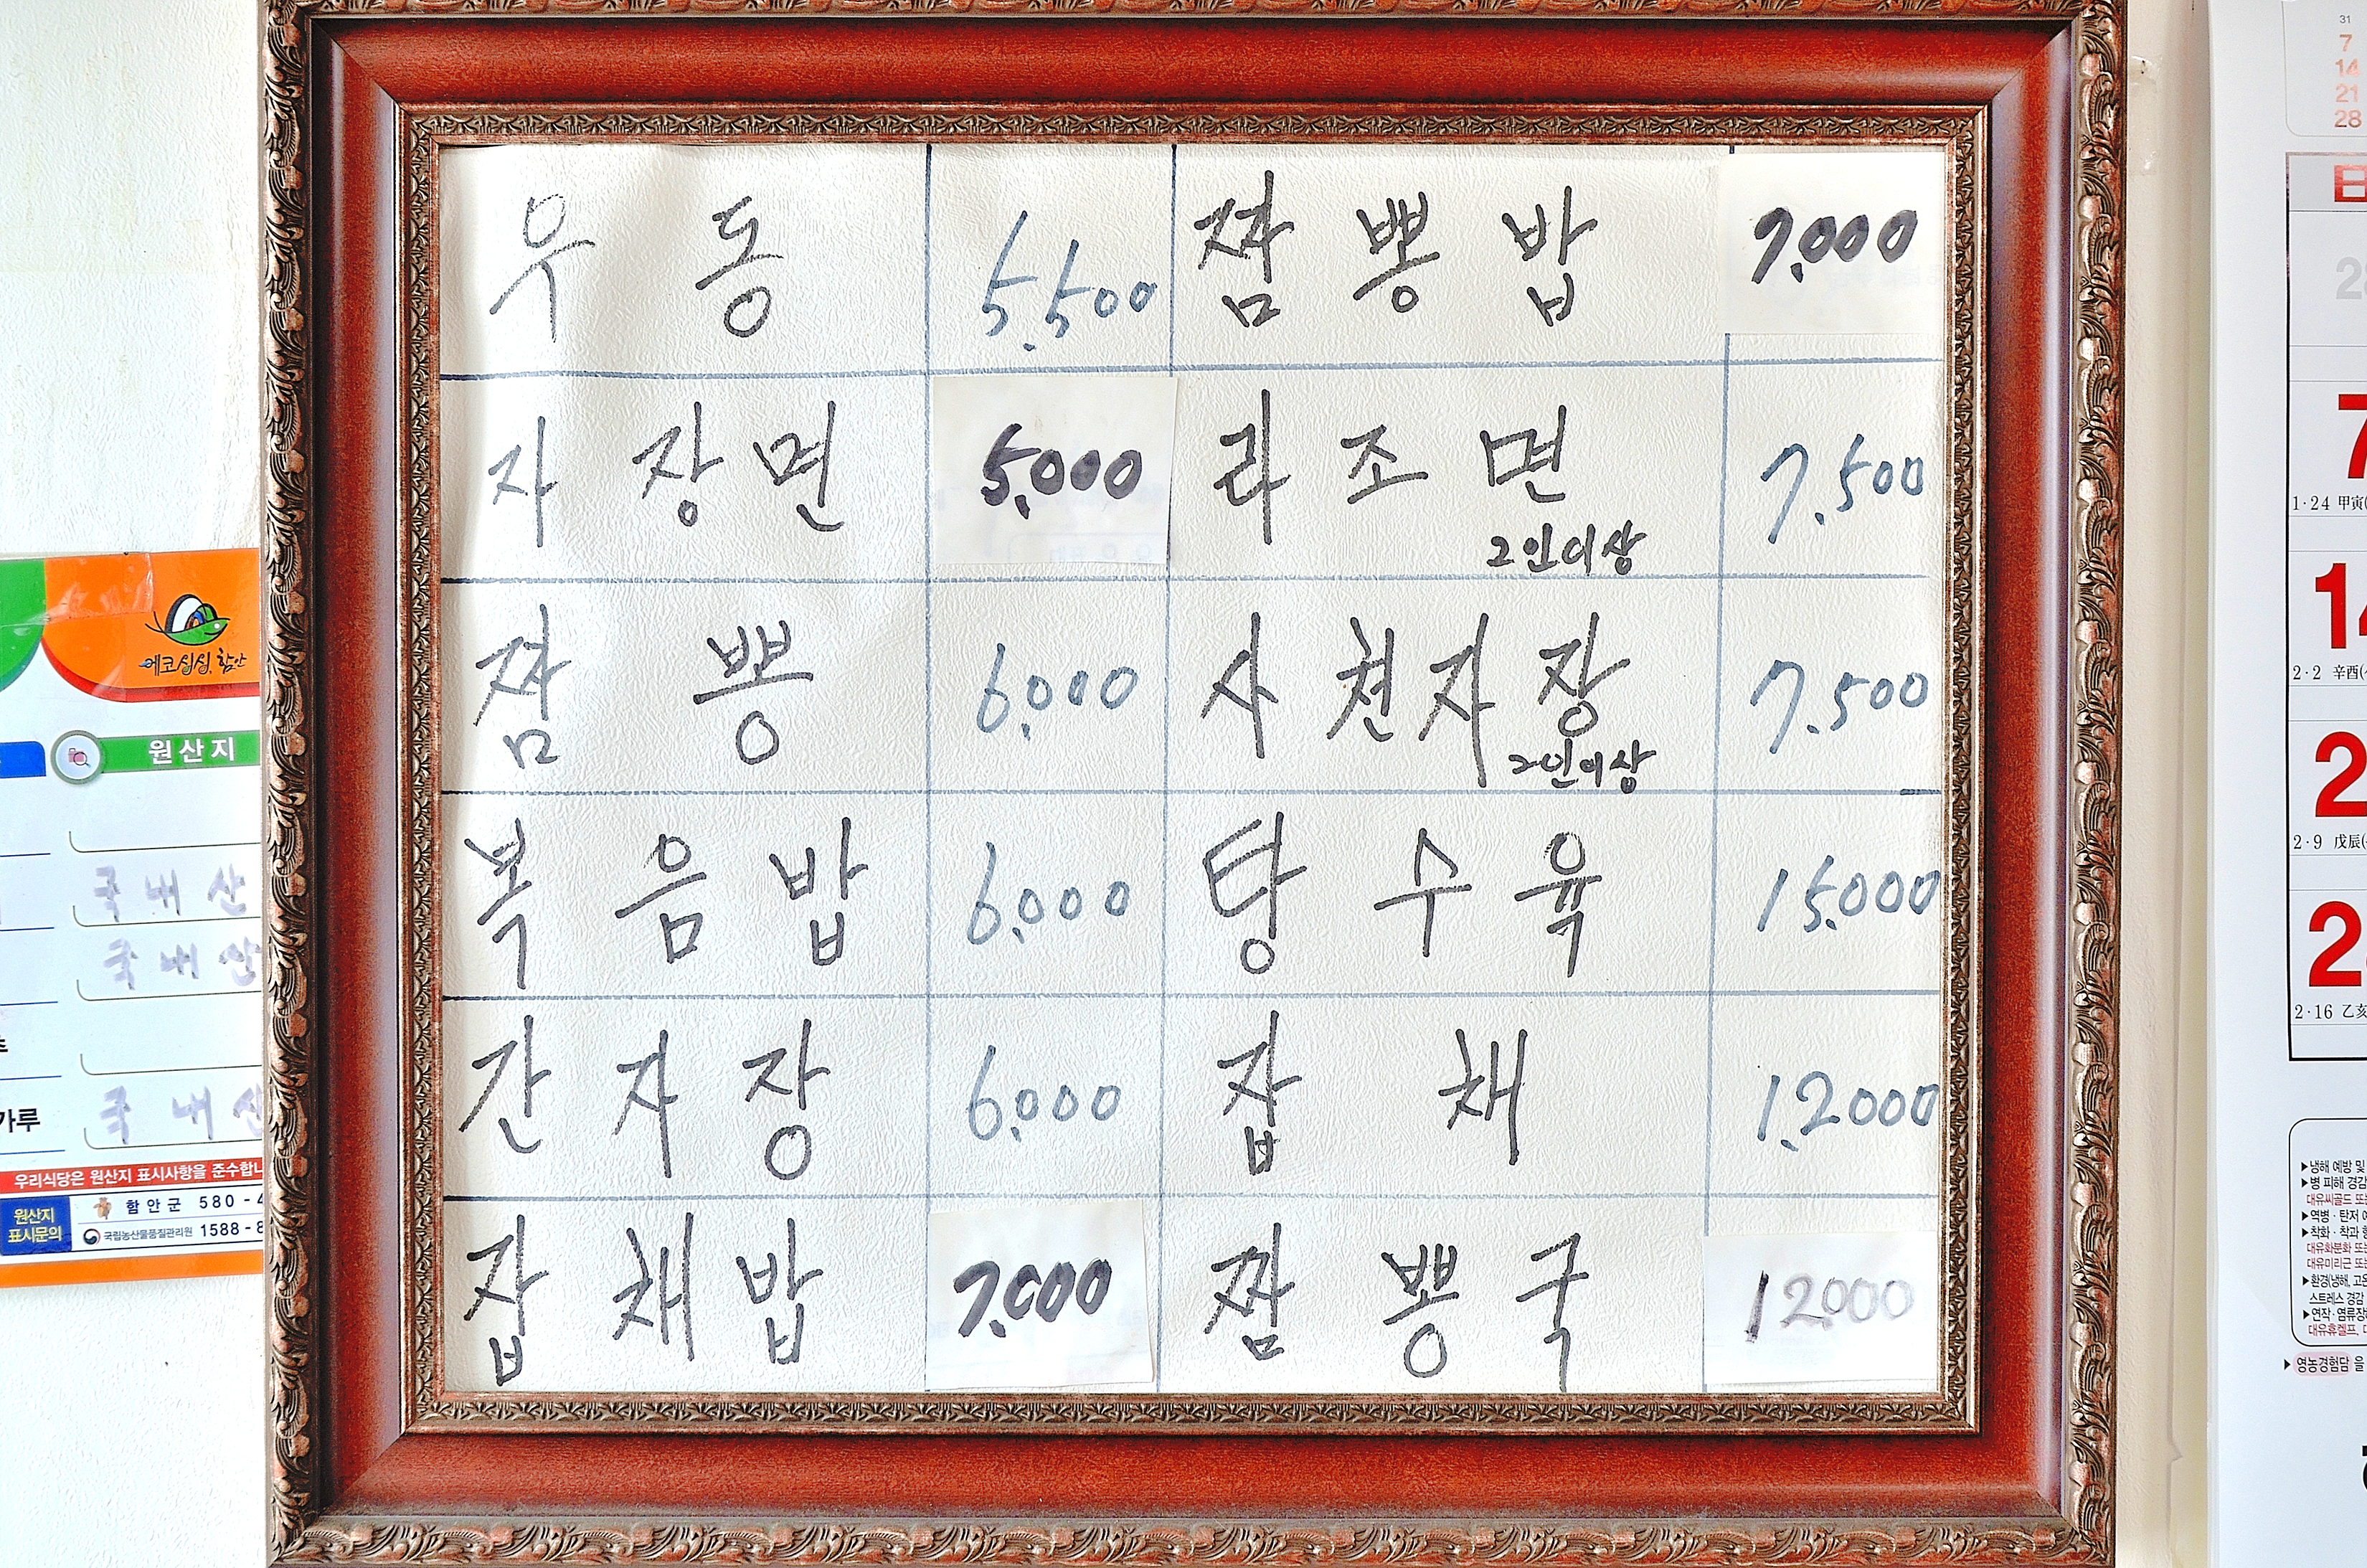 우동 5,500 짬뽕밥 7,000
자장면 5,000 라조면 7,500
2인이상
짬뽕 6,000 사천자장 7,500
2인이상
복음밥 6,000 탕수육 15,000
간자장 6,000 잡채 12,000
잡채밥 7,000 짬뽕국 12,000
에코싱싱 함안
원산지
국내산
국내산
가루 국내산
우리식당은 원산지 표시사항을 준수합니
원산지
표시문의
함안군 580-4
국립농산물품질관리원 1588-8
31
7
14
21
28
日
7
1·24 甲寅
14
2·2 辛酉
2
2·9 戊辰
2
2·16 乙亥
▶냉해 예방 및
▶병 피해 경감
▶역병·탄저
▶착화·착과
스트레스 경감
▶영농경험담 을